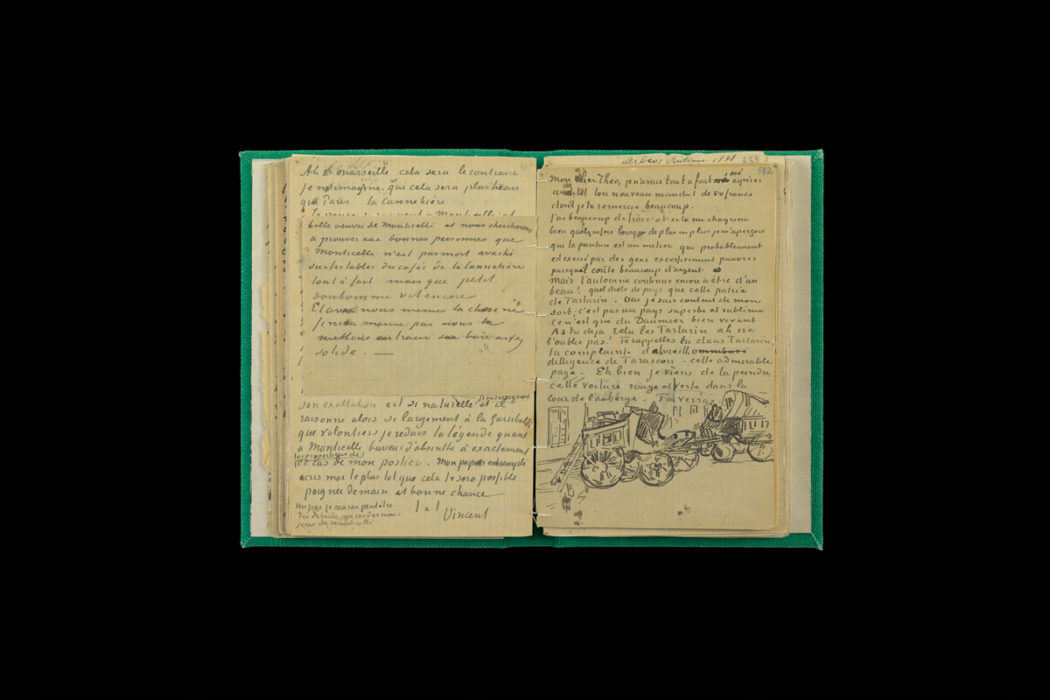 Ah à marseille cela sera le contraire
je m'imagine que cela sera plus beau
que Paris la Cannebière
belle oeuvre de Monticelli et nous cherchons
a prouver aux bonnes personnes que
Monticelli n'est pas mort avachi
sur les tables des cafés de la Cannebière
tout à fait mais que le petit
bonhomme vit encore
Et avec nous memes la chose ne
finira meme pas nous la
mettrons en train sur base assez
solide. —
son exaltation est si naturelle et il
raisonne alors si largement à la Garibaldi
que volontiers je reduis la légende quant
a Monticelli buveur d'absinthe à exactement
les proportions de
le cas de mon postier. Mon papier
ecris moi le plus tôt que cela te sera possible
poignee de main et bonne chance
t. à t.
Vincent
Un jour je saurai peut être
des details sur ces derniers
jours de Monticelli
Arles Automne 1888
552
Mon cher Theo, je n'avais tout à fait osé espérer
aussitôt ton nouveau mandat de 50 francs
dont je te remercie beaucoup.
J'ai beaucoup de frais et cela me chagrine
bien quelquefois lorsque de plus en plus je m'aperçois
que la peinture est un metier qui probablement
est exercé par des gens excessivement pauvres
puisqu'il coûte beaucoup d'argent
Mais l'automne continue encore à être d'un
beau! quel drole de pays que cette patrie
de Tartarin. Oui je suis content de mon
sort, c'est pas un pays superbe et sublime
ce n'est que du Daumier bien vivant.
As tu déjà relu les Tartarin ah ne
l'oublie pas! Te rappelles tu dans Tartarin
la complainte de la vieille
dilligence de Tarascon – cette admirable
page. Eh bien je viens de la peindre
cette voiture rouge et verte dans la
cour de l'auberge. Tu verras